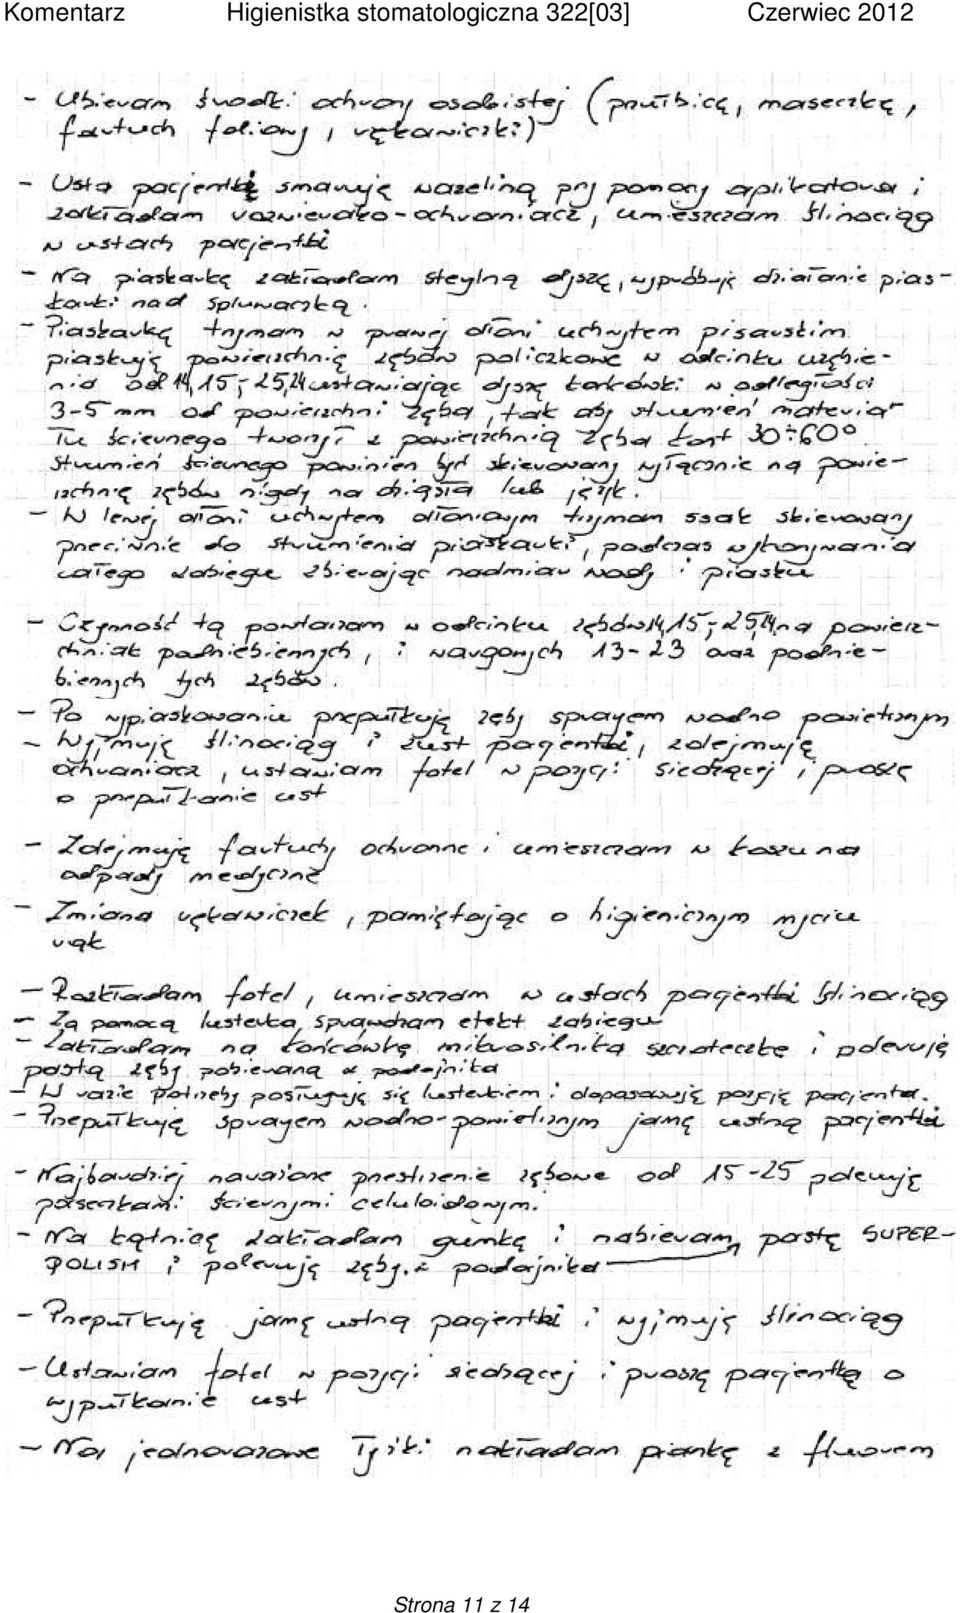 Komentarz Higienistka stomatologiczna 322[03] Czerwiec 2012
- Ubieram środki ochrony osobistej (przyłbicę, maseczkę,
fartuch foliowy, rękawiczki)
- Usta pacjentki smaruję wazeliną przy pomocy aplikatora i
zakładam rozwierako-ochraniacz, umieszczam ślinociąg
w ustach pacjentki
- Na piaskarkę zakładam sterylną dyszę, wypróbuję działanie pias-
karki nad spluwaczką.
- Piaskarkę trzymam w prawej dłoni uchwytem pisarskim
piaskuję powierzchnię zębów policzkowe w odcinku uzębie-
nia od 14,15 - 25,24 ustawiając dyszę końcówki w odległości
3-5 mm od powierzchni zęba, tak aby strumień materia-
łu ściernego tworzył z powierzchnią zęba kąt 30÷60°.
Strumień ściernego powinien być skierowany wyłącznie na powie-
rzchnię zębów nigdy na dziąsła lub język.
- W lewej dłoni uchwytem dłoniowym trzymam ssak skierowany
przeciwnie do strumienia piaskarki, podczas wykonywania
całego zabiegu zbierając nadmiar wody i piasku
- Czynność tą powtarzam w odcinku zębów 14,15 - 25,24 na powierz-
chniach podniebiennych, i wargowych 13-23 oraz podnie-
biennych tych zębów.
- Po wypiaskowaniu przepłukuję zęby sprayem wodno powietrznym
- Wyjmuję ślinociąg i z ust pacjentki, zdejmuję
ochraniacz, ustawiam fotel w pozycji siedzącej i proszę
o przepłukanie ust
- Zdejmuję fartuchy ochronne i umieszczam w koszu na
odpady medyczne
- Zmiana rękawiczek, pamiętając o higienicznym myciu
rąk
- Rozkładam fotel, umieszczam w ustach pacjentki ślinociąg
- Za pomocą lusterka, sprawdzam efekt zabiegu
- Zakładam na końcówkę mikrosilnika szczoteczkę i poleruję
pastą zęby pobieraną z podajnika
- W razie potrzeby posługuję się lusterkiem i dopasowuję pozycję pacjenta.
- Przepłukuję sprayem wodno-powietrznym jamę ustną pacjentki
- Najbardziej narażone przestrzenie zębowe od 15-25 poleruję
paseczkami ściernymi celuloidowym.
- Na kątnicę zakładam gumkę i nabieram pastę SUPER-
POLISH i poleruję zęby. z podajnika
- Przepłukuję jamę ustną pacjentki i wyjmuję ślinociąg
- Ustawiam fotel w pozycji siedzącej i proszę pacjentkę o
wypłukanie ust
- Na jednorazowe łyżki nakładam piankę z fluorem
Strona 11 z 14